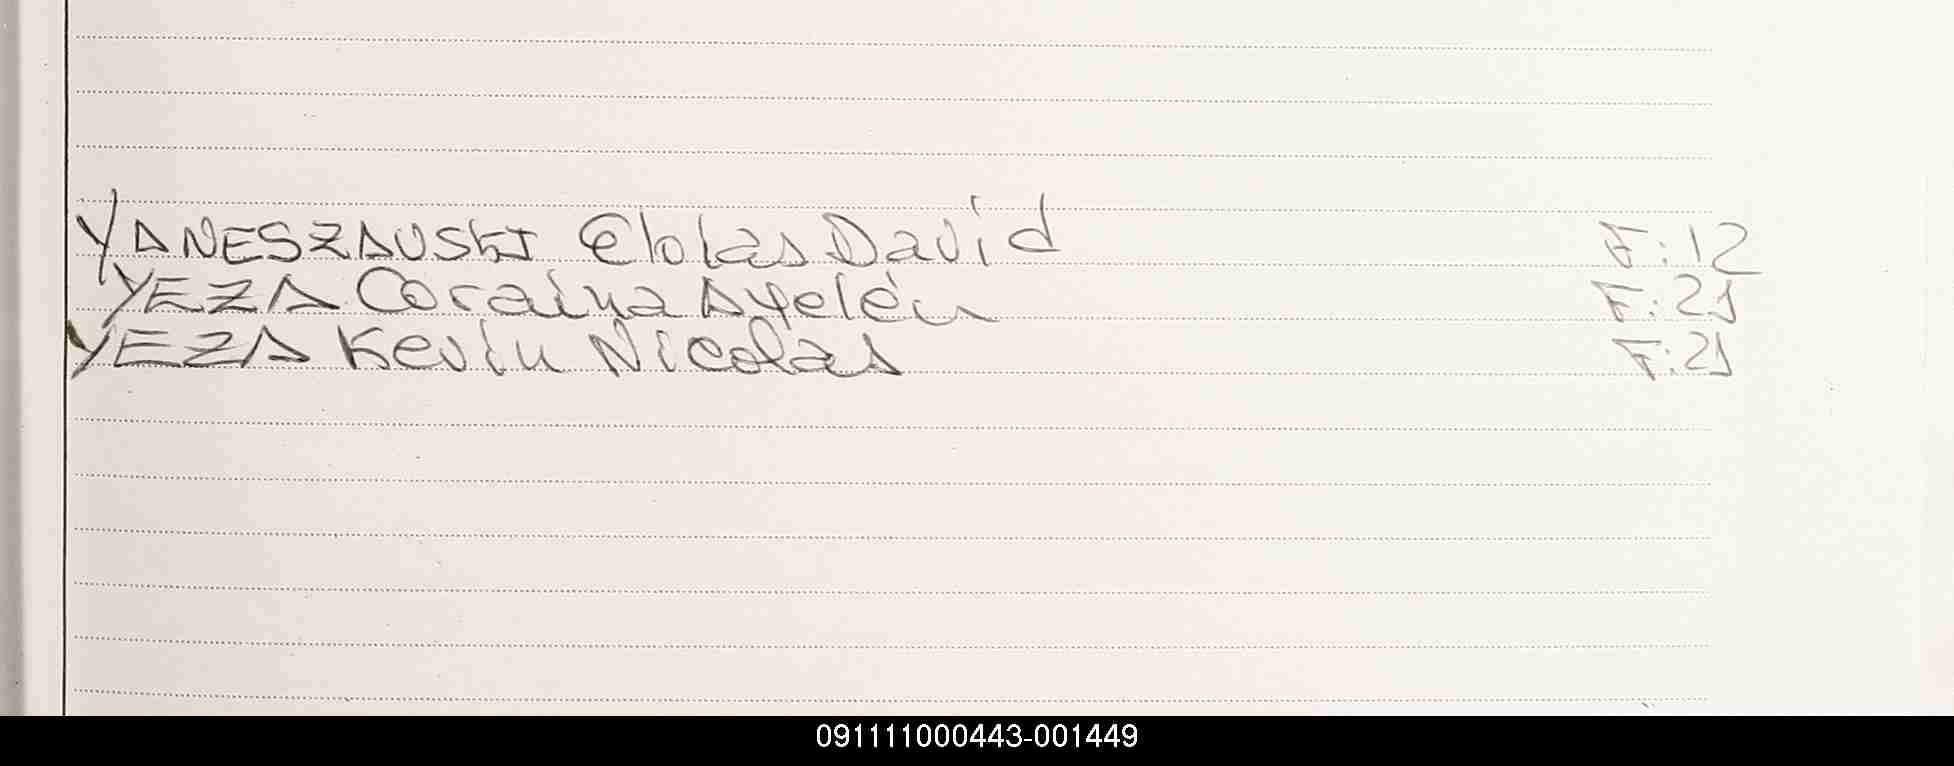 YANESZAUSKI David F:12
YEZA Coraina Ayelén F:21
YEZA Kevin Nicolas F:21
091111000443-001449